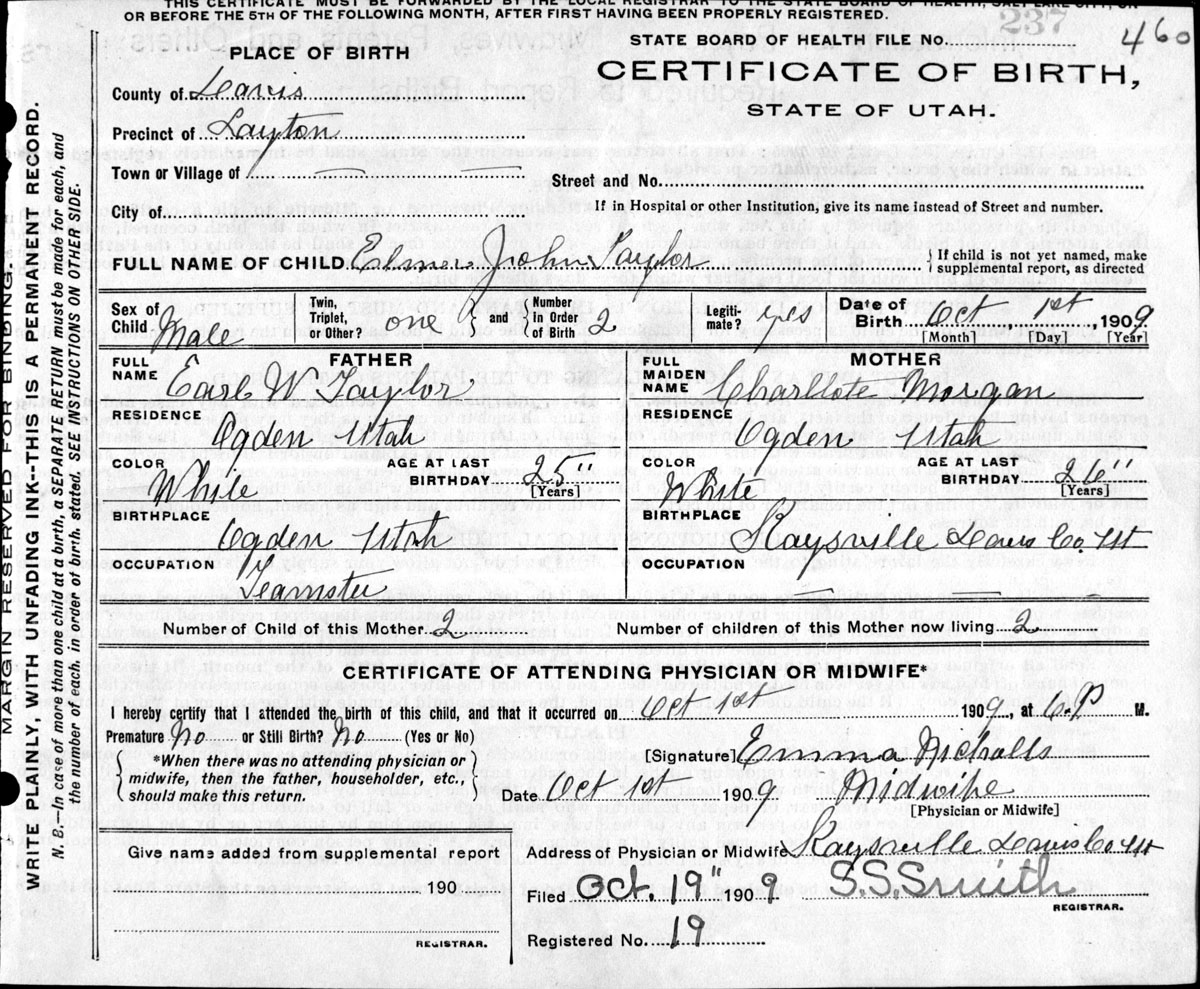 THIS CERTIFICATE MUST BE FORWARDED BY THE LOCAL REGISTRAR TO THE STATE BOARD OF HEALTH, SALT LAKE CITY, ON
OR BEFORE THE 5TH OF THE FOLLOWING MONTH, AFTER FIRST HAVING BEEN PROPERLY REGISTERED.
237
460
PLACE OF BIRTH
STATE BOARD OF HEALTH FILE NO.
CERTIFICATE OF BIRTH,
STATE OF UTAH.
County of Davis
Precinct of Layton
Town or Village of
Street and No.
City of
If in Hospital or other Institution, give its name instead of Street and number.
FULL NAME OF CHILD Elmer John Taylor
If child is not yet named, make supplemental report, as directed
Sex of Child Male
Twin, Triplet, or Other? one and Number In Order of Birth 2
Legiti-mate? yes
Date of Birth Oct 1st, 1909
[Month] [Day] [Year]
FATHER
FULL NAME Earl W Taylor
MOTHER
FULL MAIDEN NAME Charllote Morgan
RESIDENCE Ogden Utah
RESIDENCE Ogden Utah
COLOR White
AGE AT LAST BIRTHDAY 25"
[Years]
COLOR White
AGE AT LAST BIRTHDAY 26"
[Years]
BIRTHPLACE Ogden Utah
BIRTHPLACE Kaysville Davis Co. Ut
OCCUPATION Teamster
OCCUPATION —
Number of Child of this Mother 2
Number of children of this Mother now living 2
CERTIFICATE OF ATTENDING PHYSICIAN OR MIDWIFE*
I hereby certify that I attended the birth of this child, and that it occurred on Oct 1st 1909, at 6.P M.
Premature No or Still Birth? No (Yes or No)
*When there was no attending physician or midwife, then the father, householder, etc., should make this return.
[Signature] Emma Nicholls
Date Oct 1st 1909
Midwife
[Physician or Midwife]
Give name added from supplemental report
190
REGISTRAR.
Address of Physician or Midwife Kaysville Davis Co Ut
Filed Oct. 19" 1909
S.S. Smith
REGISTRAR.
Registered No. 19
MARGIN RESERVED FOR BINDING.
WRITE PLAINLY, WITH UNFADING INK--THIS IS A PERMANENT RECORD.
N. B.--In case of more than one child at a birth, a SEPARATE RETURN must be made for each, and
the number of each, in order of birth, stated. SEE INSTRUCTIONS ON OTHER SIDE.